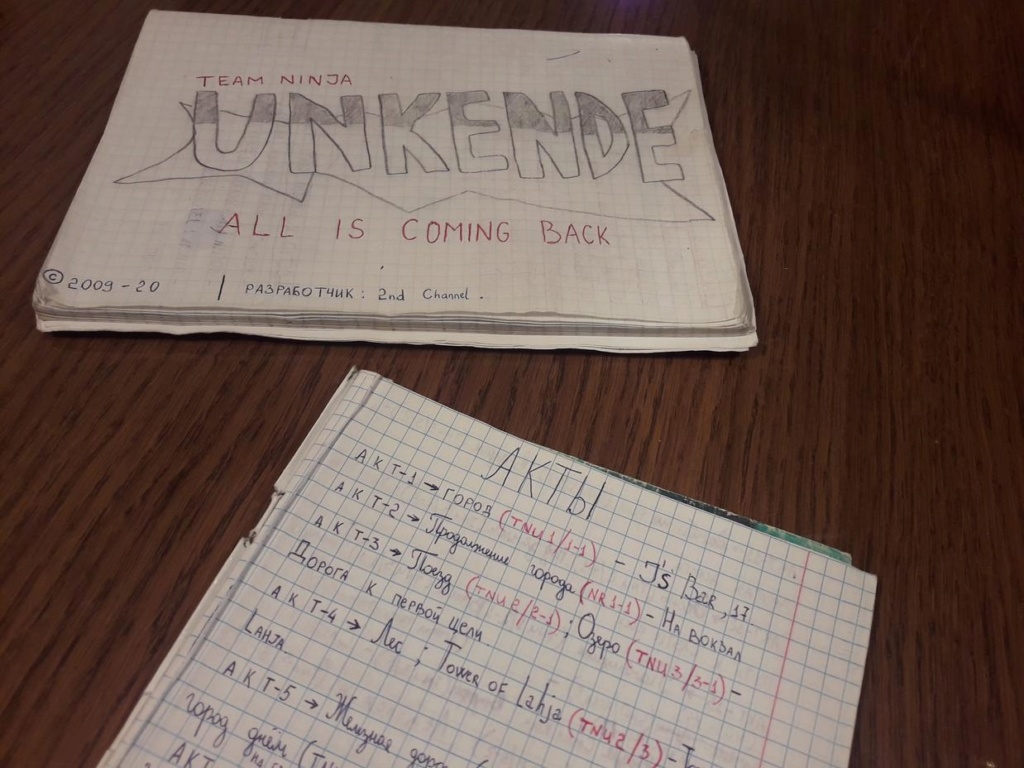 TEAM NINJA
UNKENDE
ALL IS COMING BACK
© 2009-20 | РАЗРАБОТЧИК: 2nd Channel.
АКТЫ
АКТ-1 → ГОРОД (TNU1/1-1) - J'S Bar, 17
АКТ-2 → Продолжение города (NR1-1) - На вокзал
АКТ-3 → Поезд (TNU2/2-1); Озеро (TNU3/3-1) -
Дорога к первой цели
АКТ-4 → Лес; Tower of Lahja (TNU2/3) -
Lahja
АКТ-5 → Железная
город днём (TNU
АКТ